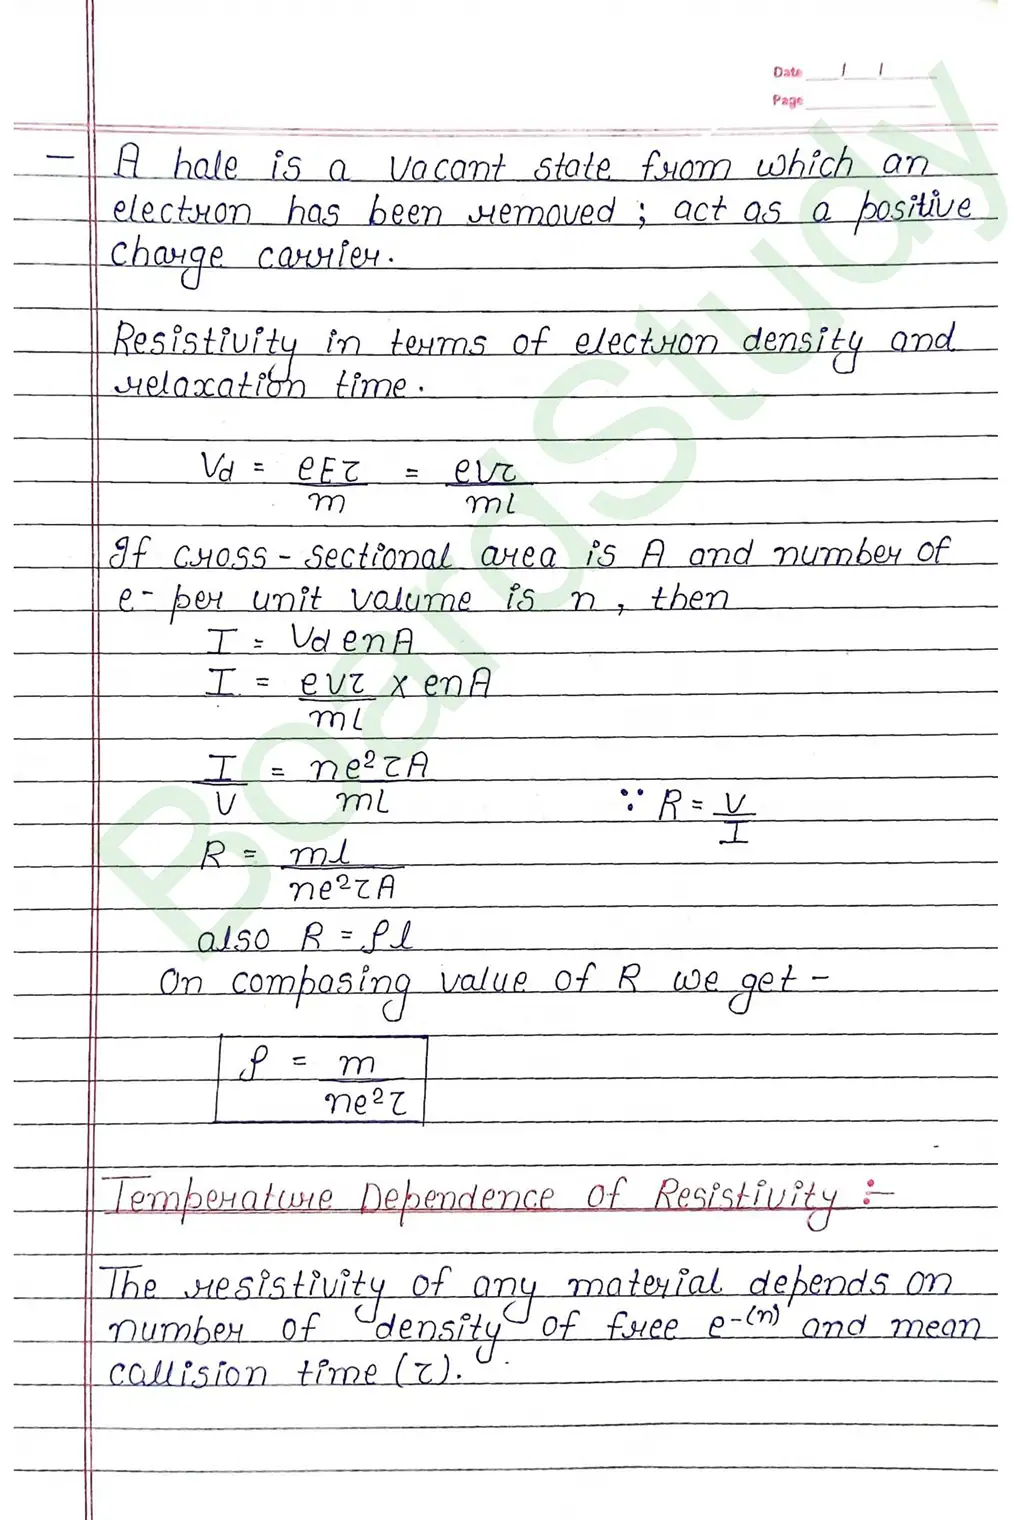 Date / /
Page
— A hole is a vacant state from which an
electron has been removed ; act as a positive
charge carrier.
Resistivity in terms of electron density and
relaxation time.
Vd = eEτ/m = eVτ/ml
If cross-sectional area is A and number of
e- per unit volume is n, then
I = Vd enA
I = eVτ/ml x enA
I/V = ne²τA/ml ∵ R = V/I
R = ml/ne²τA
also R = ρl
On compasing value of R we get -
ρ = m/ne²τ
Temperature Dependence of Resistivity :-
The resistivity of any material depends on
number of density of free e-(n) and mean
collision time (τ).
BoardStudy